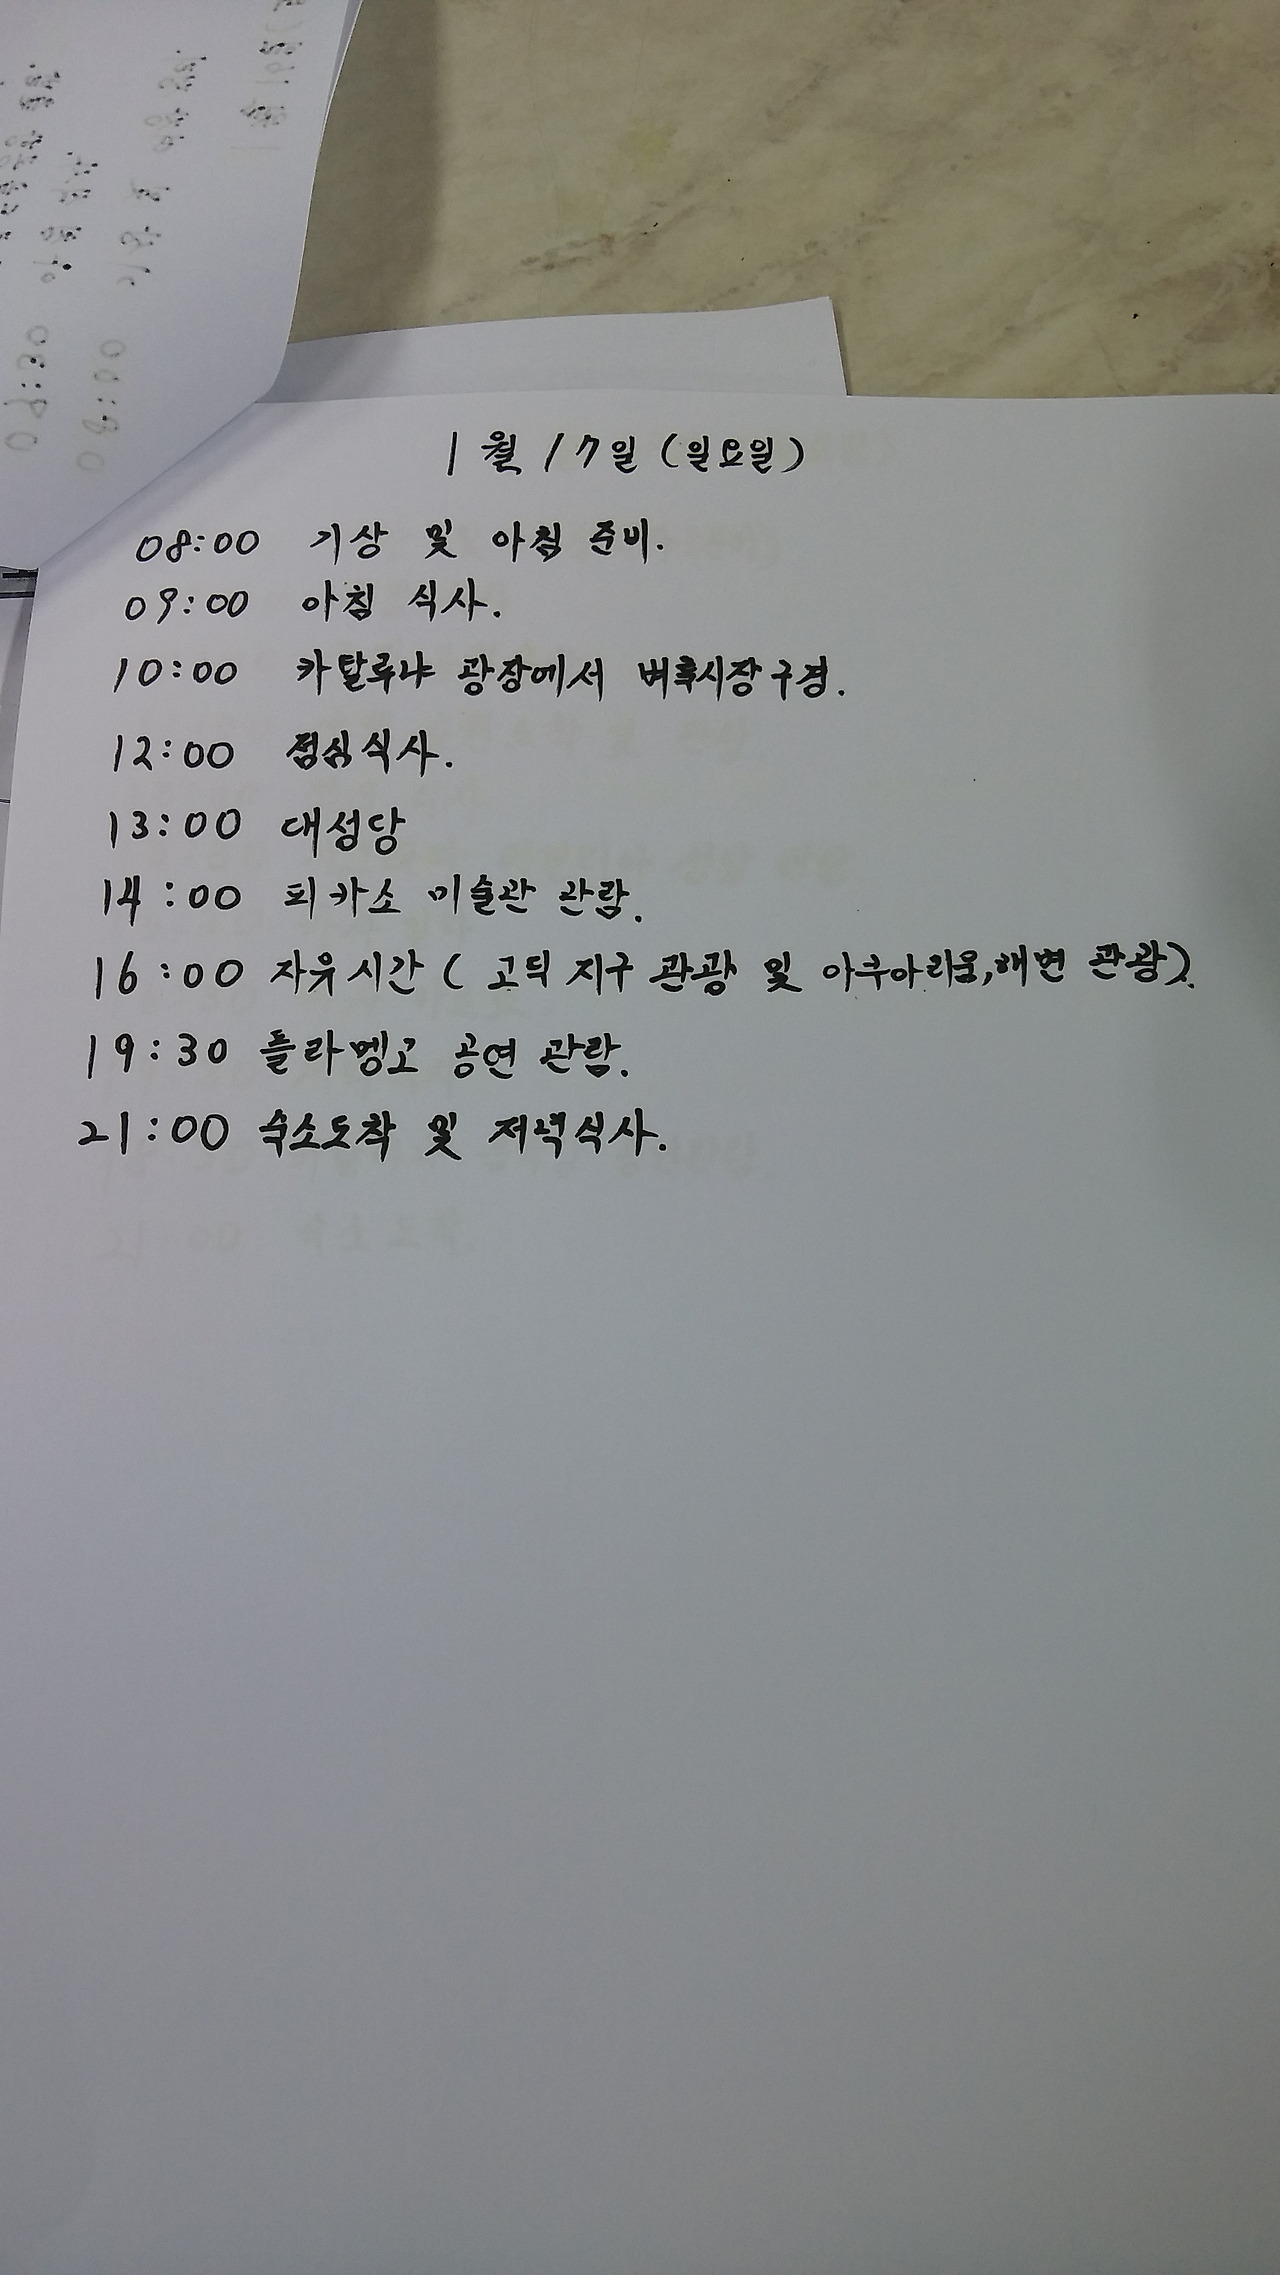 1월 17일 (일요일)
08:00 기상 및 아침 준비.
09:00 아침 식사.
10:00 카탈루냐 광장에서 벼룩시장구경.
12:00 점심식사.
13:00 대성당
14:00 피카소 미술관 관람.
16:00 자유시간 ( 고딕 지구 관광 및 아쿠아리움,해변 관광).
19:30 플라멩고 공연 관람.
21:00 숙소도착 및 저녁식사.
09:30
08:00